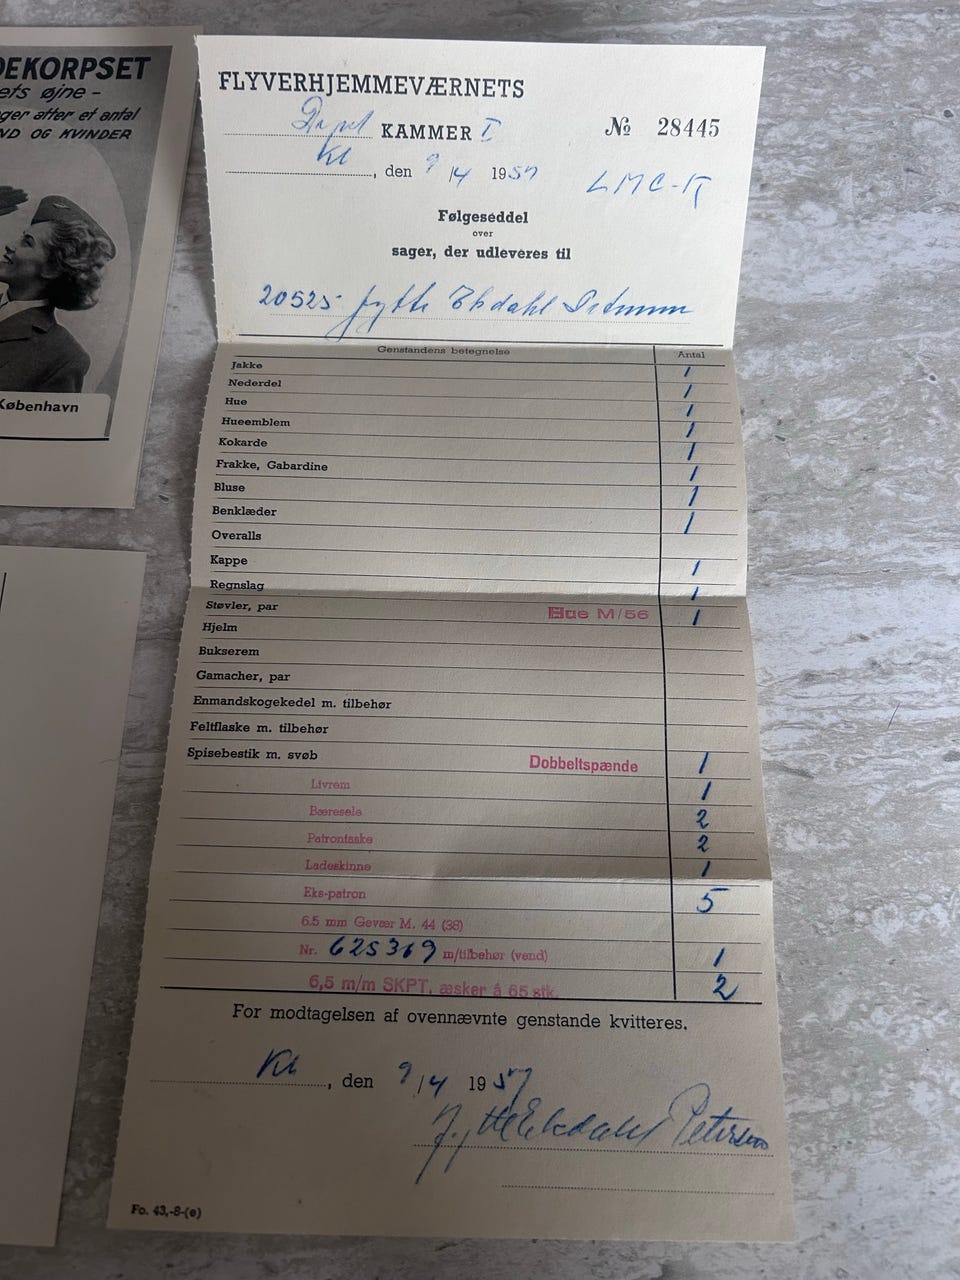 DEKORPSET
ets øjne –
ger efter et antal
ND OG KVINDER
København
FLYVERHJEMMEVÆRNETS
KAMMER I
№ 28445
Kl
, den 9/4 1957
LMC-K
Følgeseddel
over
sager, der udleveres til
20525 Jytte Ekdahl Petersen
Genstandens betegnelse Antal
Jakke 1
Nederdel 1
Hue 1
Hueemblem 1
Kokarde 1
Frakke, Gabardine 1
Bluse 1
Benklæder 1
Overalls
Kappe 1
Regnslag 1
Støvler, par Hue M/56 1
Hjelm
Bukserem
Gamacher, par
Enmandskogekedel m. tilbehør
Feltflaske m. tilbehør
Spisebestik m. svøb Dobbeltspænde 1
Livrem 1
Bæresele 2
Patrontaske 2
Ladeskinne 1
Eks-patron 5
6.5 mm Gevær M. 44 (38)
Nr. 625369 m/tilbehør (vend) 1
6,5 m/m SKPT. æsker á 65 stk. 2
For modtagelsen af ovennævnte genstande kvitteres.
Kl , den 9/4 1957
Jytte Ekdahl Petersen
Fo. 43,-8-(e)